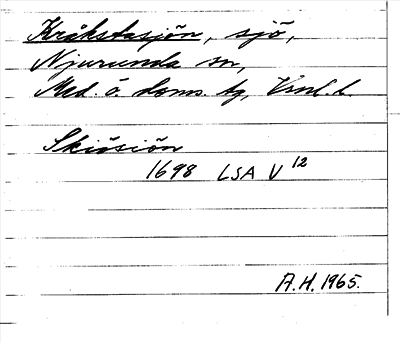 Kråkstasjön, sjö,
Njurunda sn,
Med. ö. doms. tg, Vnl. l.
Skiösiön
1698 LSA V 12
A.H. 1965.